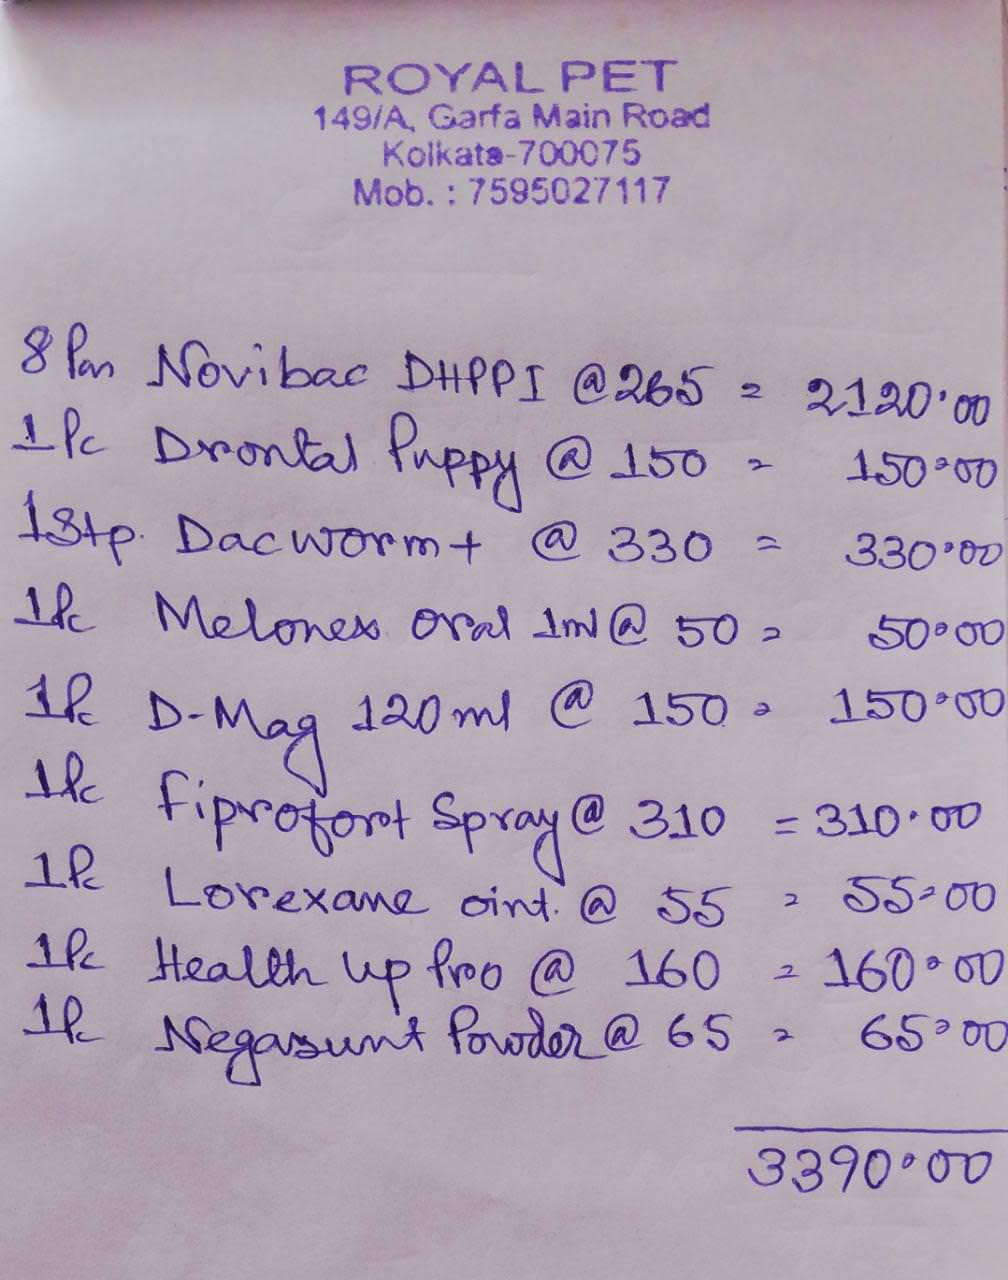 ROYAL PET
149/A, Garfa Main Road
Kolkata-700075
Mob. : 7595027117
8 Pcs Novibac DHPPI @ 265 = 2120.00
1 Pc Drontal Puppy @ 150 = 150.00
1 Stp. Dacworm+ @ 330 = 330.00
1 Pc Melonex oral 1ml @ 50 = 50.00
1 Pc D-Mag 120ml @ 150 = 150.00
1 Pc Fiprofort Spray @ 310 = 310.00
1 Pc Lorexane oint. @ 55 = 55.00
1 Pc Health Up Pro @ 160 = 160.00
1 Pc Negasunt Powder @ 65 = 65.00
3390.00